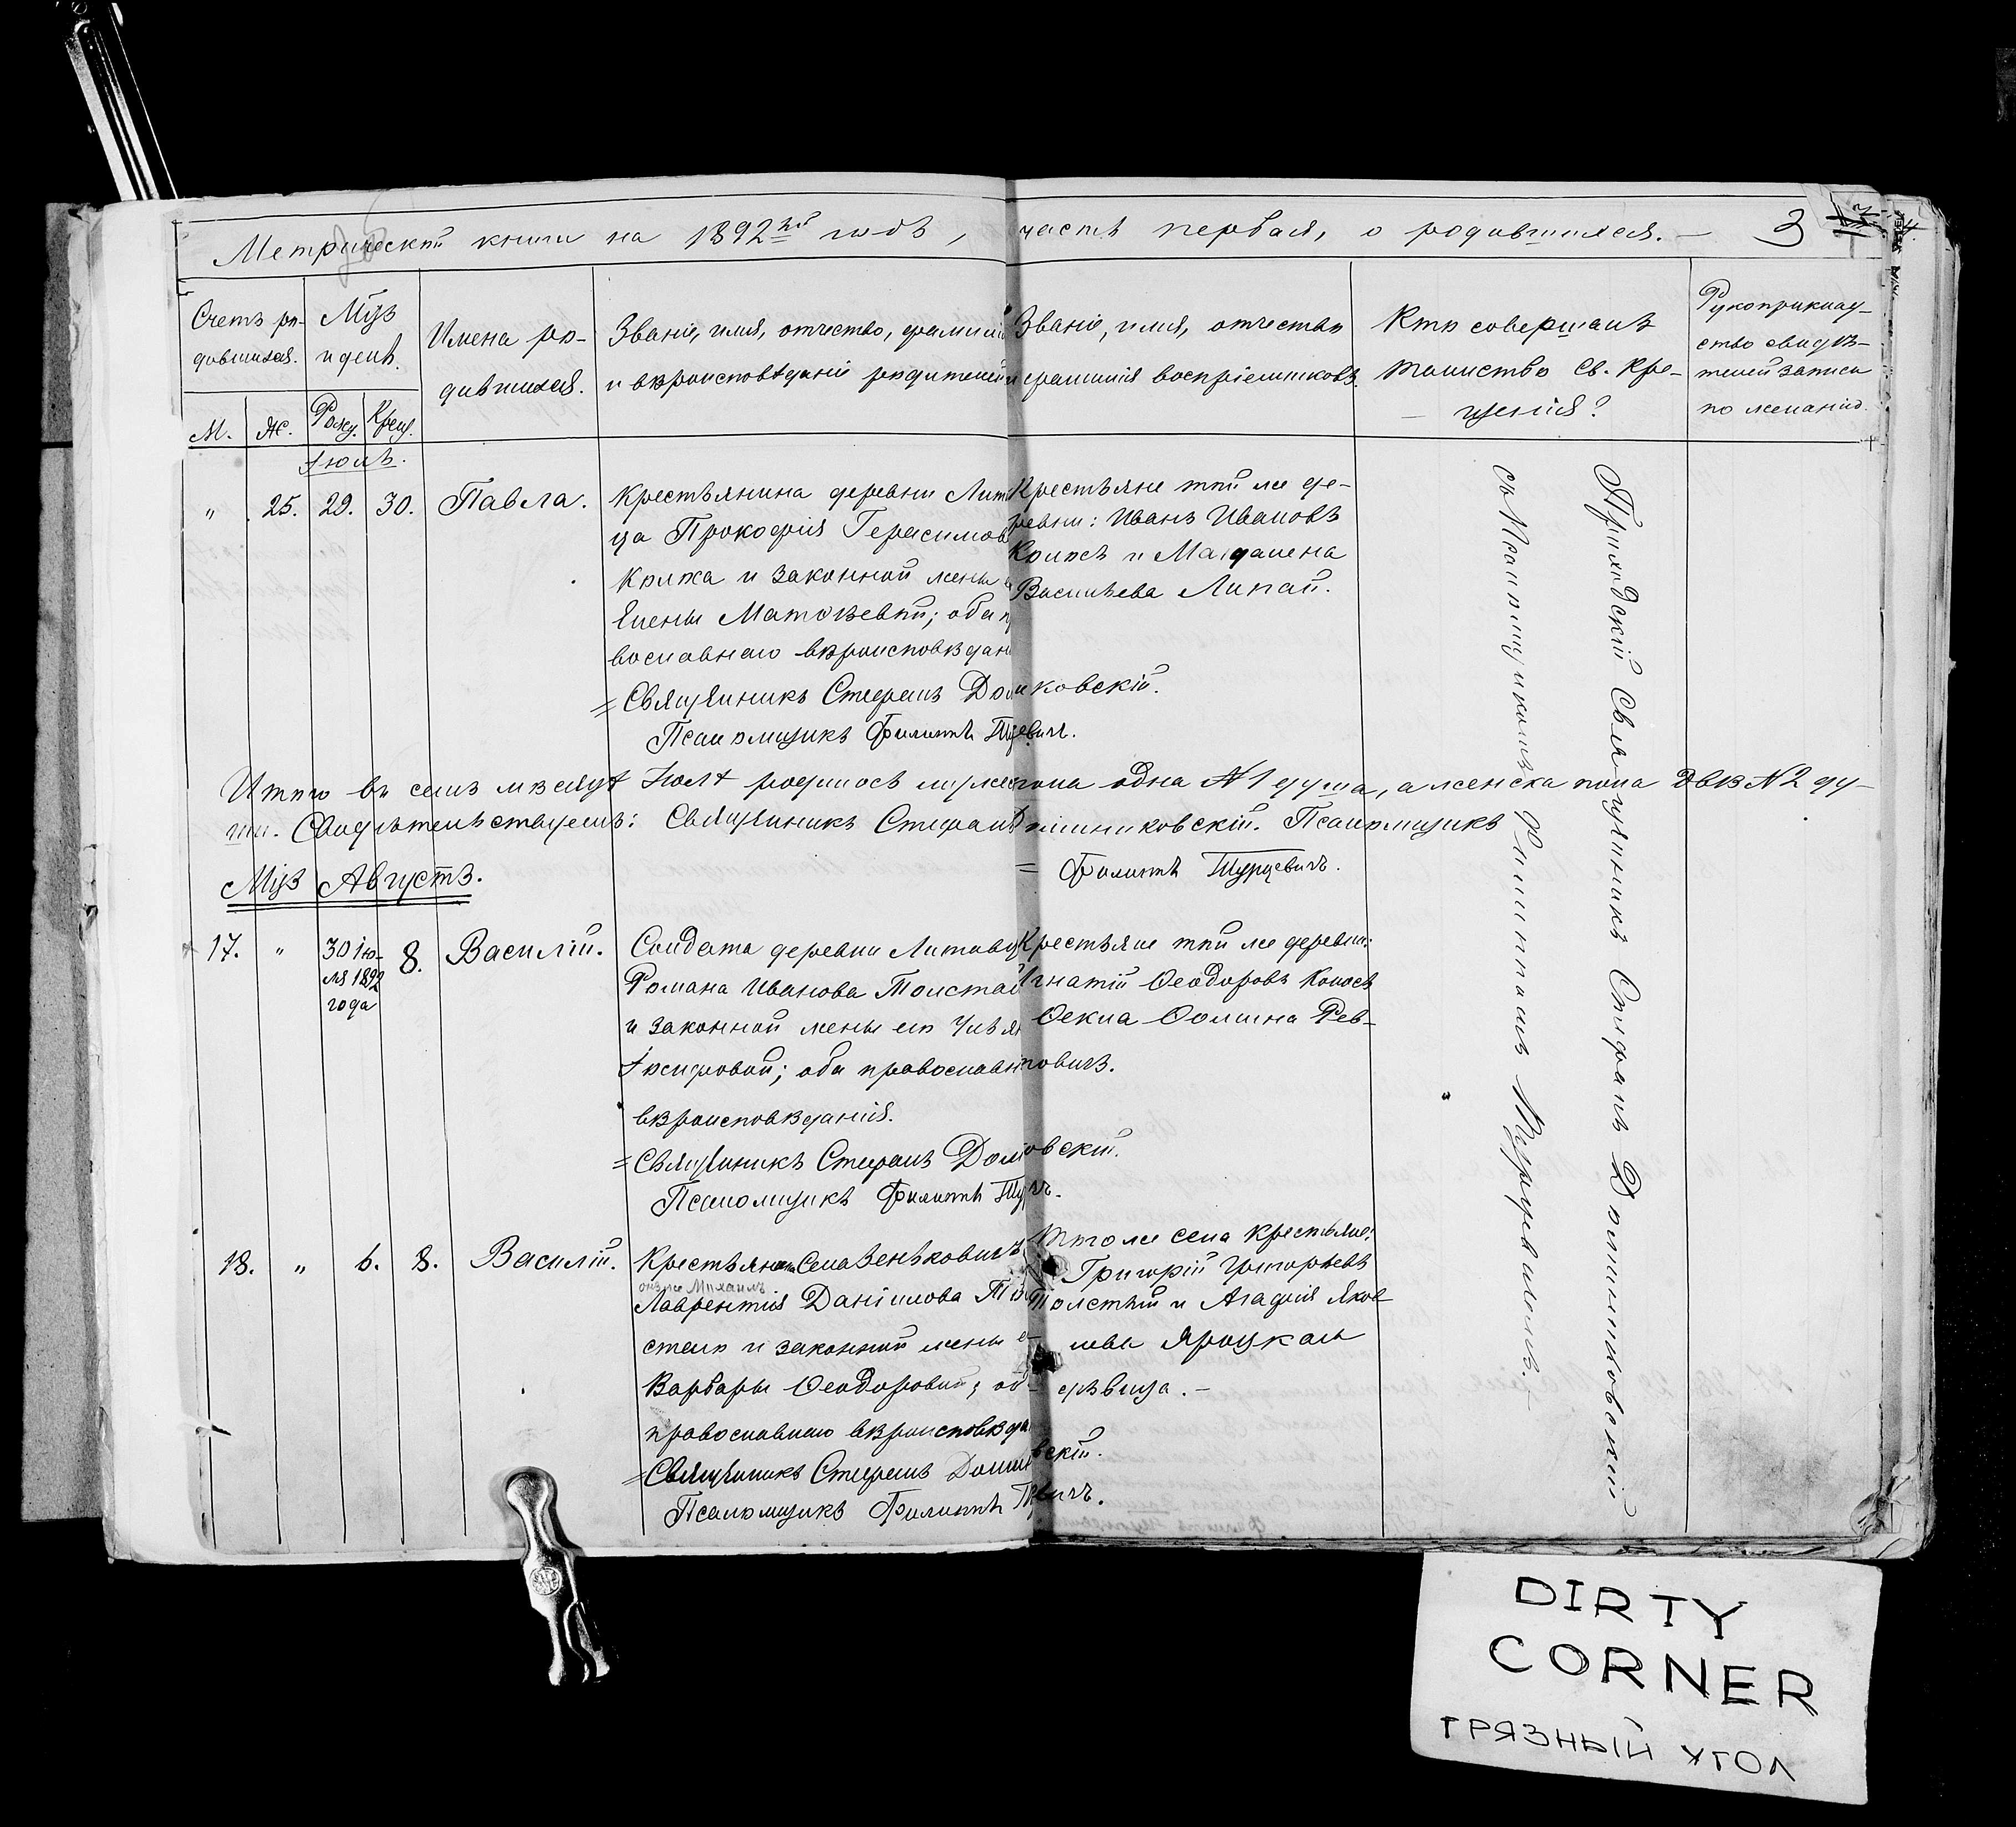 Метрической книги на 1892й годъ, часть первая, о родившихся. — 3
Счетъ ро-
дившихся.
М.
Ж.
Мцъ
и день.
Рожд.
Крещ.
Имена ро-
дившихся.
Званіе, имя, отчество, фамилія
и вѣроисповѣданіе родителей
Званіе, имя, отчество
и фамилія воспріемниковъ
Кто совершалъ
таинство Св. Кре-
щенія?
Рукоприклад-
ство свидѣ-
телей записи
по желанію.
Іюль.
" 25. 29. 30. Павла.
Крестьянина деревни Лит
ца Прокофія Герасимов
и законной жены
Елены Матѳѣевой; оба п
вославнаго вѣроисповѣдан
= Священникъ Стефанъ Дом
Псаломщикъ Филиппъ
Крестьяне той же де-
ревни: Иванъ Ивановъ
и Магдалена
Васильева Липай.
иковскій.
евичъ.
Приходскій Священникъ Стефанъ Доминиковскій
съ Псаломщикомъ Филиппомъ Турцевичемъ. —
Итого въ семъ мѣсяцѣ Іюлѣ родилось мужескаго пола одна № 1 душа, а женска пола двѣ № 2 ду-
ши. Свидѣтельствуемъ: Священникъ Стефанъ Доминиковскій. Псаломщикъ
= Филиппъ Турцевичъ.
Мцъ Августъ.
17. " 30 Ію-
ля 1892
года
8. Василій.
Солдата деревни Литавц
Романа Иванова Толстай
и законной жены его Улья
Іосифовой; оба православн
вѣроисповѣданія.
= Священникъ Стефанъ Дом
Псаломщикъ Филиппъ Ту
Крестьяне той же деревни:
Игнатій Ѳеодоровъ Колосъ
Ѳекла Ѳомина Рев-
ковичъ.
овскій.
чъ.
18. " 6. 8. Василій.
Крестьянина Села Венѣковичъ
онъ же Михаилъ
Лаврентія Даніилова То
стаго и законной жены е-
Варвары Ѳеодоровой; об-
православнаго вѣроисповѣда
= Священникъ Стефанъ Домин
Псаломщикъ Филиппъ Т
Того же села крестьяне:
Григорій Григорьевъ
Толстый и Агафія Яков-
лева Яроцкая
дѣвица. —
вскій.
евичъ.
DIRTY
CORNER
ГРЯЗНЫЙ УГОЛ